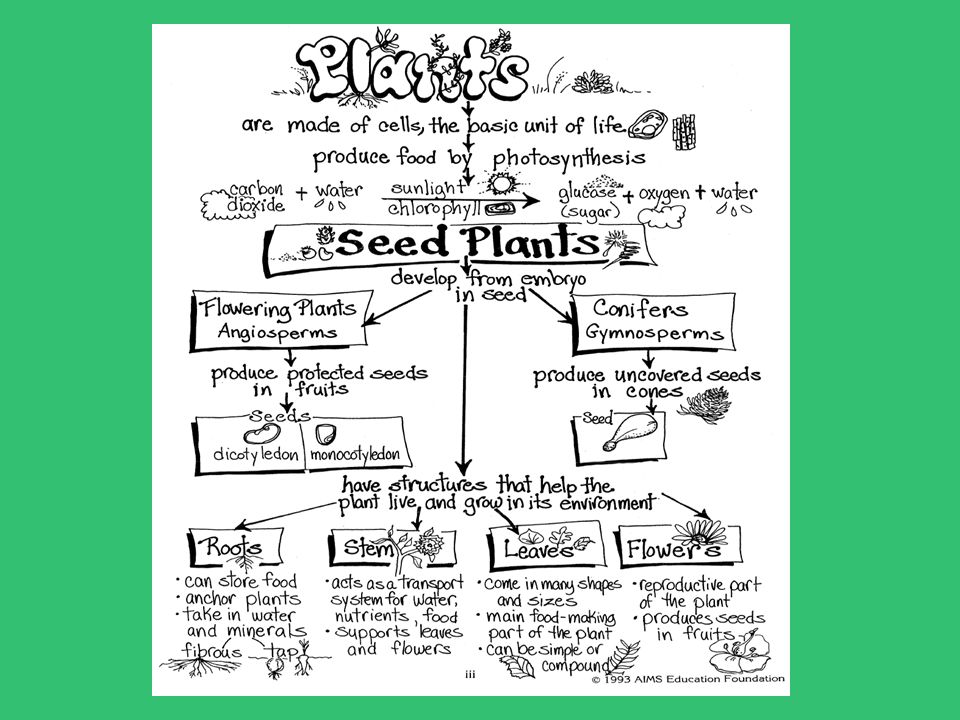 Plants
are made of cells, the basic unit of life
produce food by photosynthesis
carbon dioxide + water
sunlight
chlorophyll
glucose (sugar) + oxygen + water
Seed Plants
develop from embryo
in seed
Flowering Plants
Angiosperms
produce protected seeds
in fruits
Seeds
dicotyledon
monocotyledon
Conifers
Gymnosperms
produce uncovered seeds
in cones
Seed
have structures that help the
plant live, and grow in its environment
Roots
• can store food
• anchor plants
• take in water
and minerals
fibrous tap
Stem
• acts as a transport
system for water,
nutrients, food
• supports leaves
and flowers
Leaves
• come in many shapes
and sizes
• main food-making
part of the plant
• can be simple or
compound
Flowers
• reproductive part
of the plant
• produces seeds
in fruits
iii
© 1993 AIMS Education Foundation